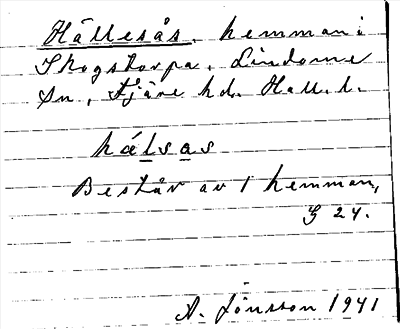 Hällesås, hemman i
Skogstorpa, Lindome
sn, Fjäre hd. Hall. l.
hálsas
Består av 1 hemman,
G 24.
A. Jönsson 1941